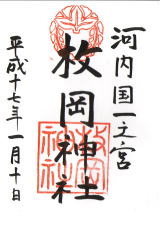 河内国一之宮
枚岡神社
平成十七年一月十日
枚岡神社